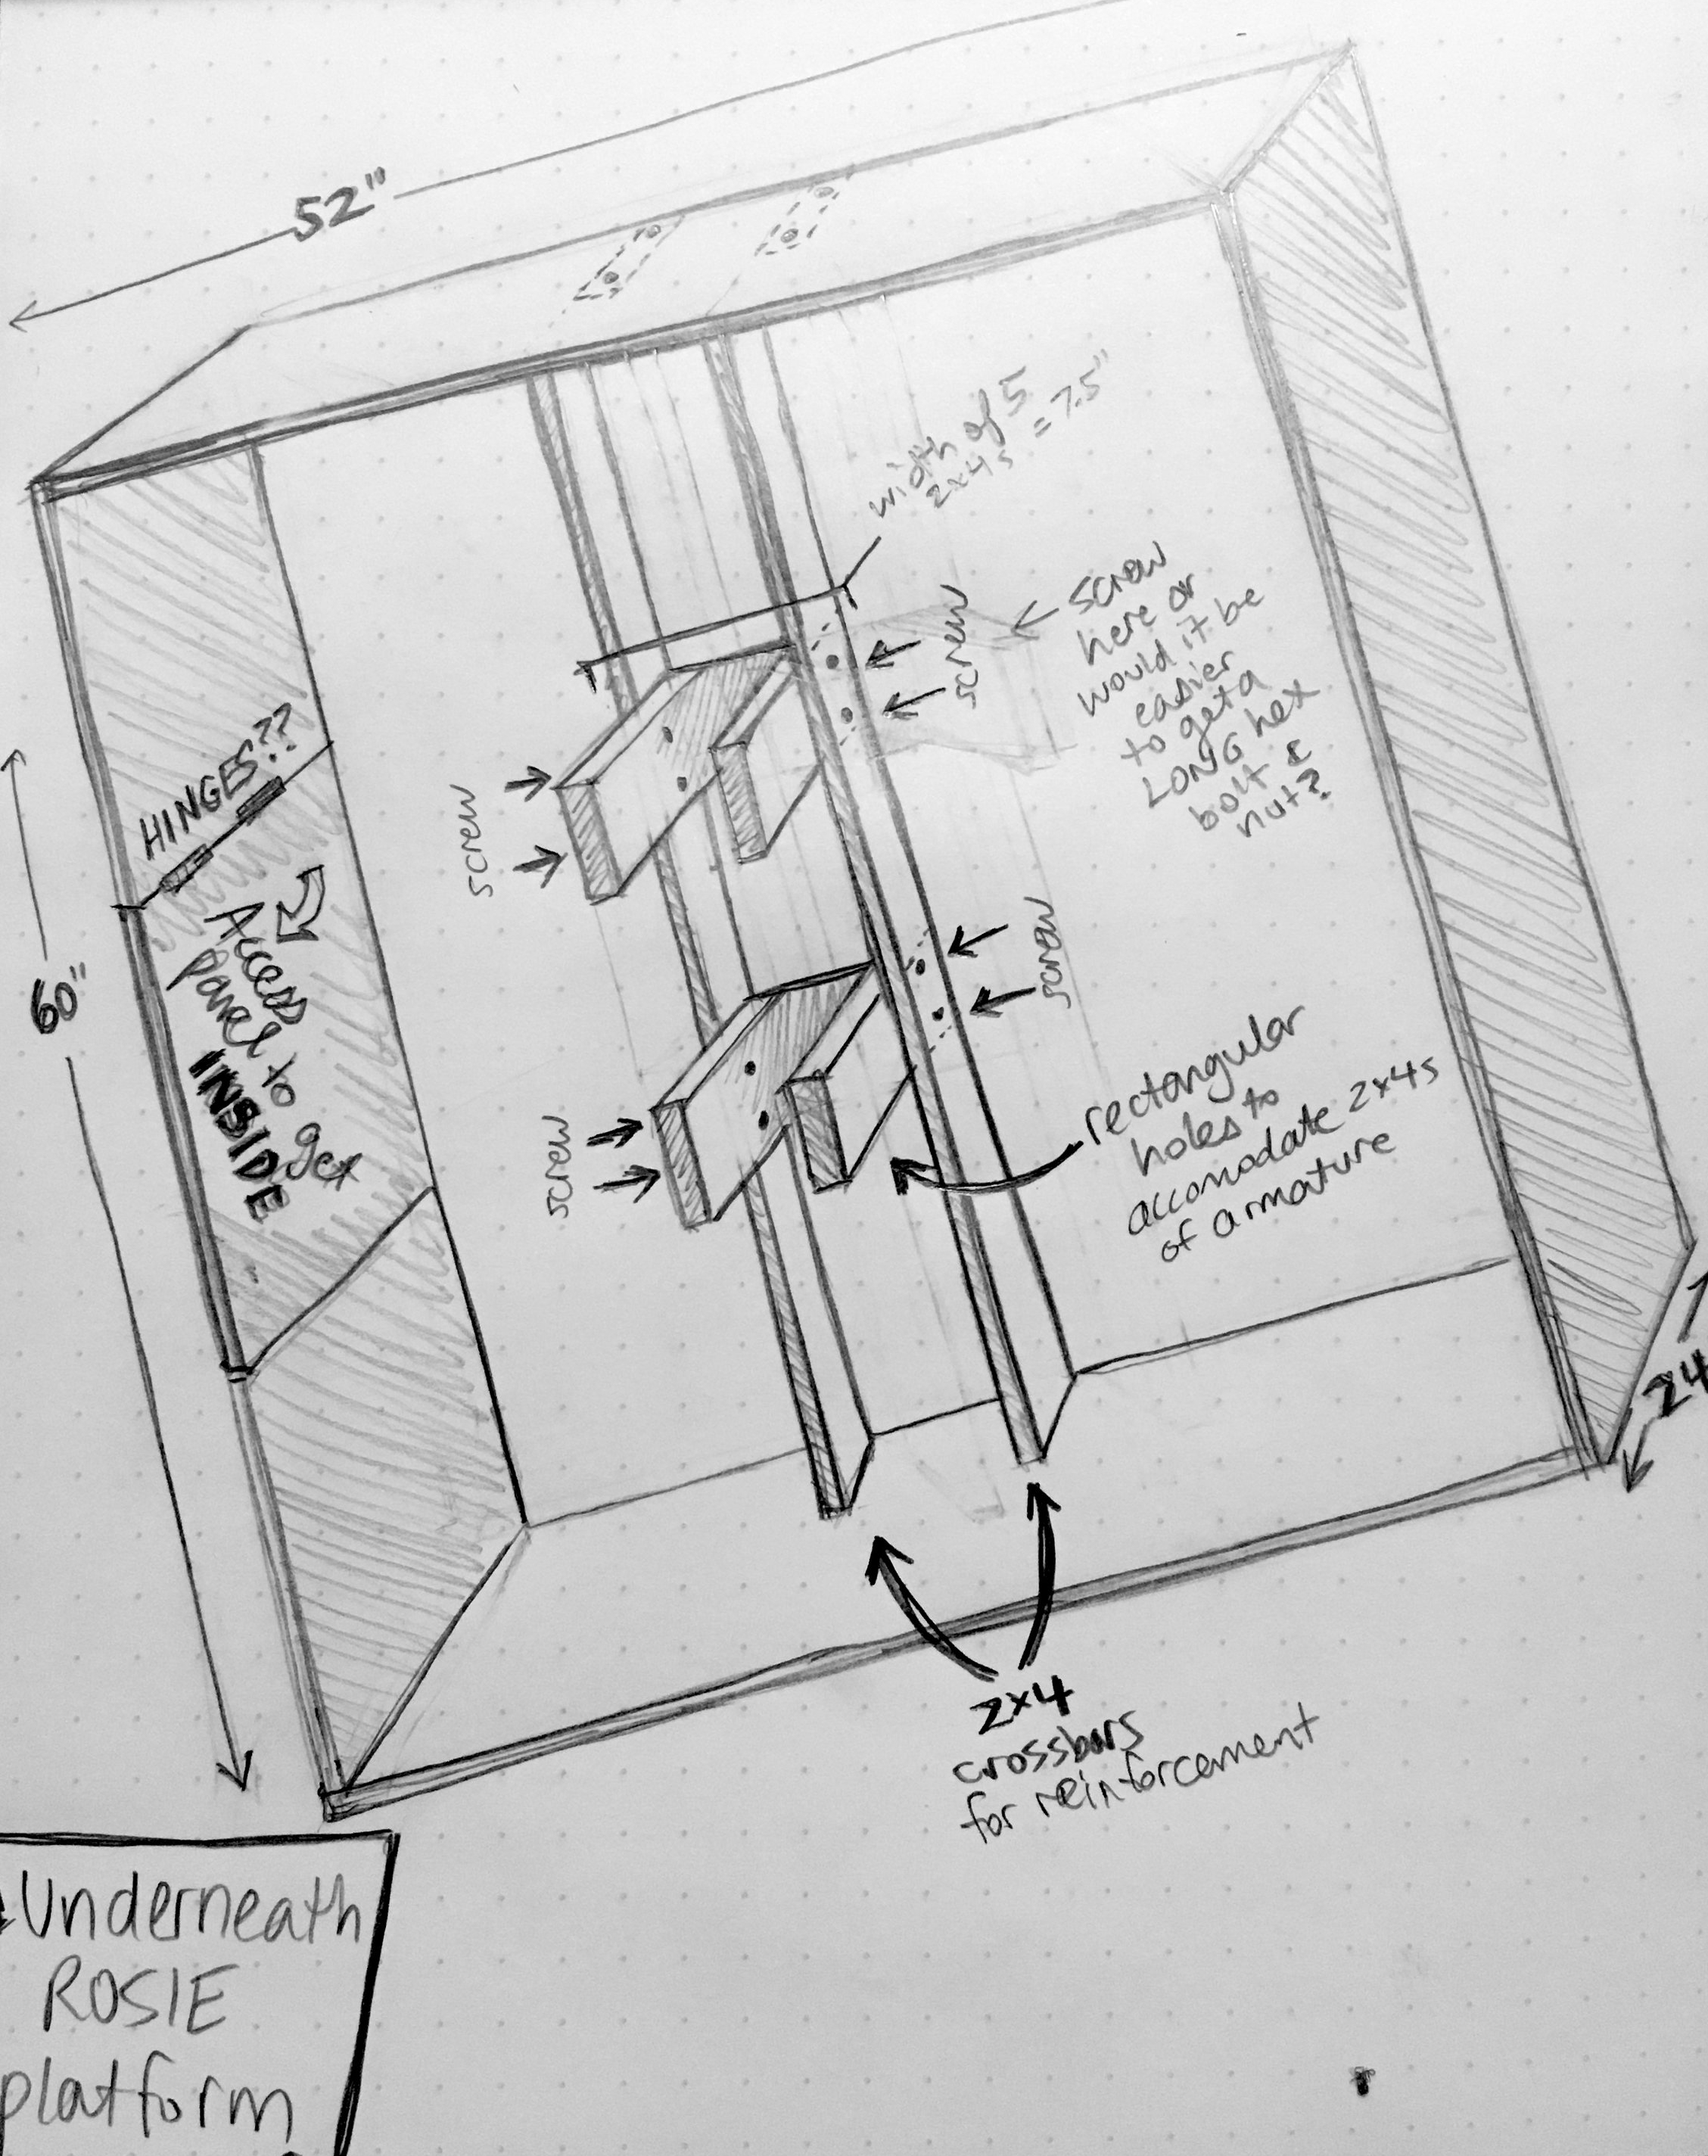 52"
width of 5
2x4s = 7.5"
screw
screw
here or
would it be
easier
to get a
LONG hex
bolt &
nut?
HINGES??
screw
Access
panel to
get
INSIDE
60"
screw
screw
rectangular
holes to
accomodate 2x4s
of armature
24
2x4
crossbars
for reinforcement
Underneath
ROSIE
platform